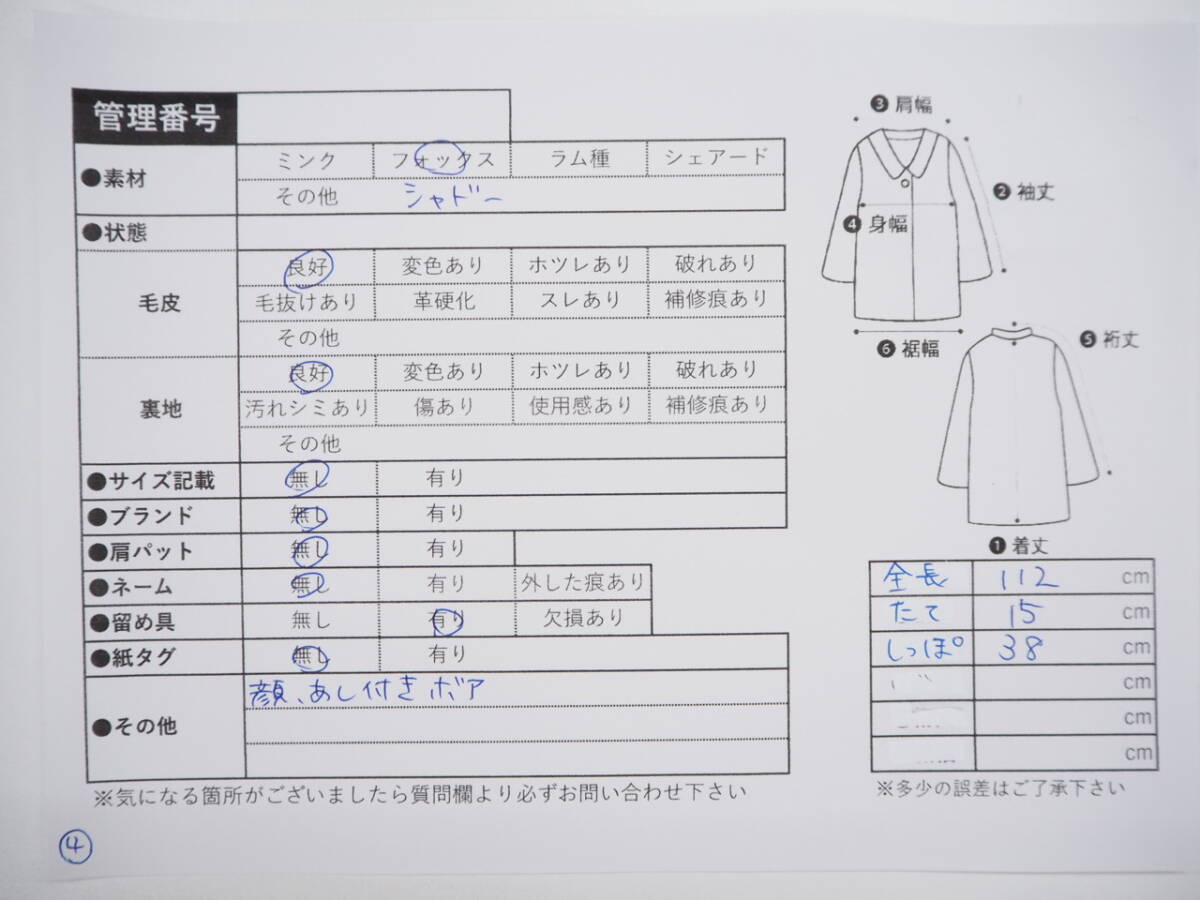 管理番号
●素材 ミンク フォックス ラム種 シェアード
その他 シャドー
●状態
毛皮 良好 変色あり ホツレあり 破れあり
毛抜けあり 革硬化 スレあり 補修痕あり
その他
裏地 良好 変色あり ホツレあり 破れあり
汚れシミあり 傷あり 使用感あり 補修痕あり
その他
●サイズ記載 無し 有り
●ブランド 無し 有り
●肩パット 無し 有り
●ネーム 無し 有り 外した痕あり
●留め具 無し 有り 欠損あり
●紙タグ 無し 有り
●その他 顔、あし付きボア
※気になる箇所がございましたら質問欄より必ずお問い合わせ下さい
④
❸肩幅
❷袖丈
❹身幅
❻裾幅
❺裄丈
❶着丈
全長 112 cm
たて 15 cm
しっぽ 38 cm
cm
cm
cm
※多少の誤差はご了承下さい